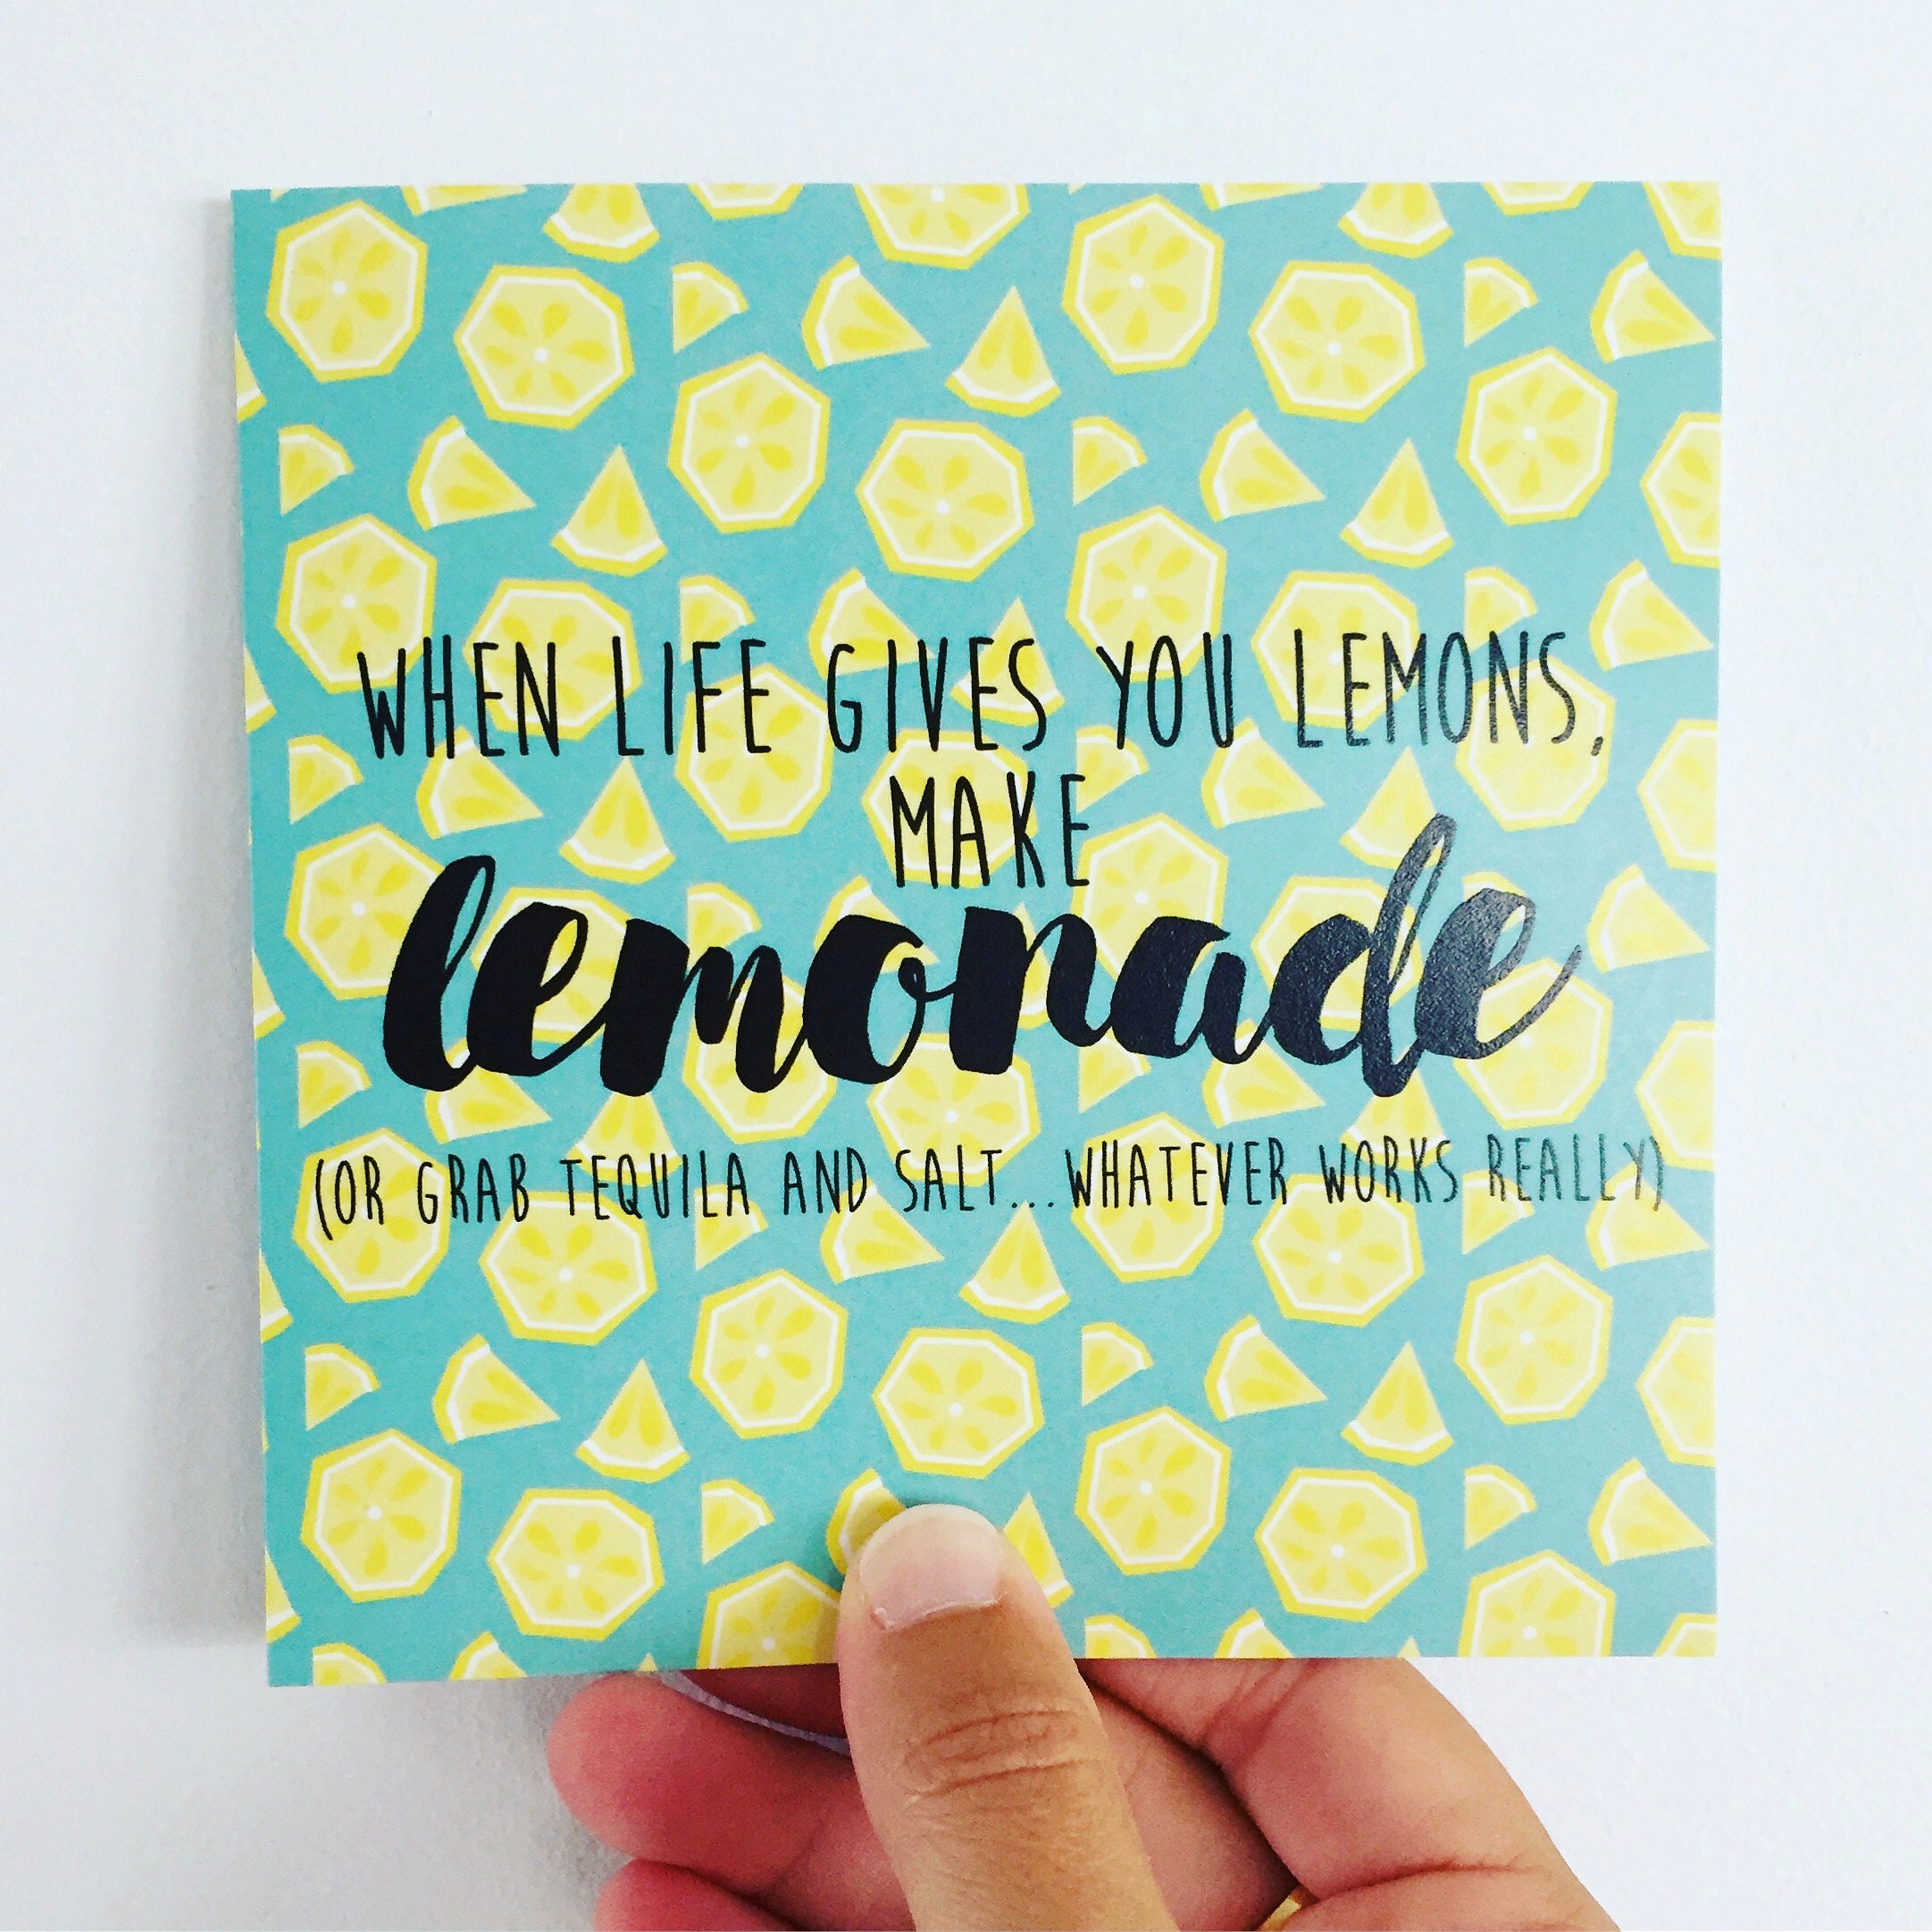 WHEN LIFE GIVES YOU LEMONS,
MAKE
lemonade
(OR GRAB TEQUILA AND SALT...WHATEVER WORKS REALLY)